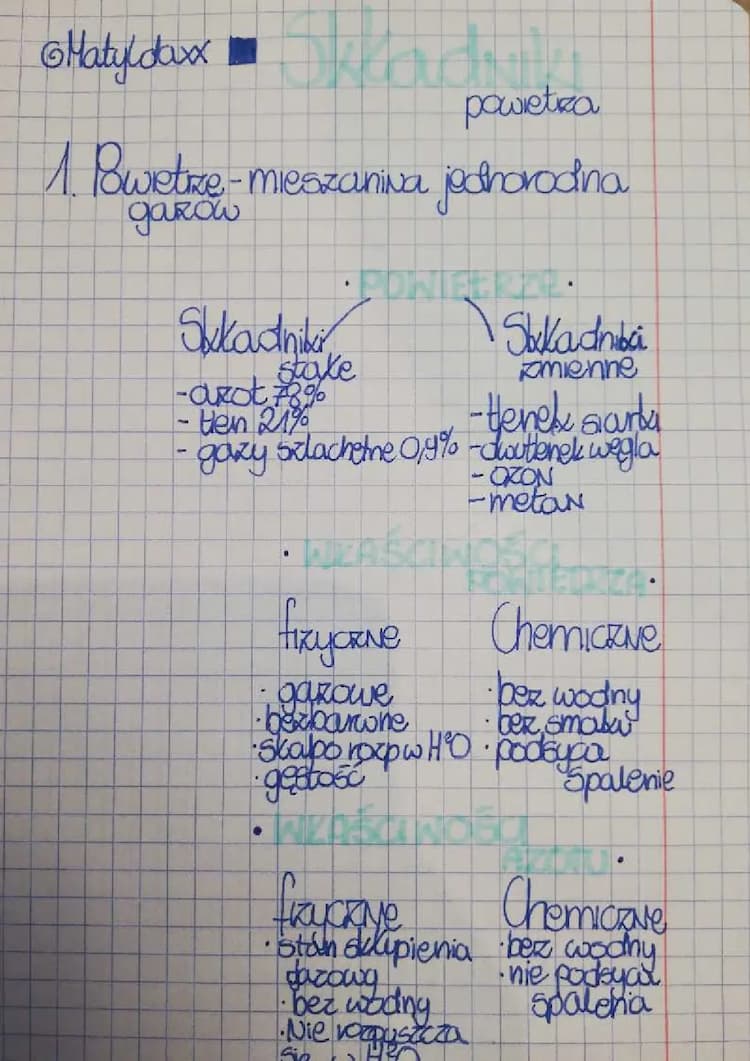 @Matyldaxx
Składniki
powietrza
1. Powietrze - mieszanina jednorodna
gazów
· POWIETRZE ·
Składniki
stałe
- azot 78%
- tlen 21%
- gazy szlachetne 0,9%
Składniki
zmienne
- tlenek siarki
- dwutlenek węgla
- ozon
- metan
· WŁAŚCIWOŚCI
POWIETRZA ·
fizyczne
· gazowe
· bezbarwne
· słabo rozp w H²O
· gęstość
Chemiczne
· bez wodny
· bez smaku
· podsyca
spalenie
· WŁAŚCIWOŚCI
AZOTU ·
fizyczne
· stan skupienia
gazowy
· bez wodny
· Nie rozpuszcza
się w H²O
Chemiczne
· bez wodny
· nie podsyca
spalenia